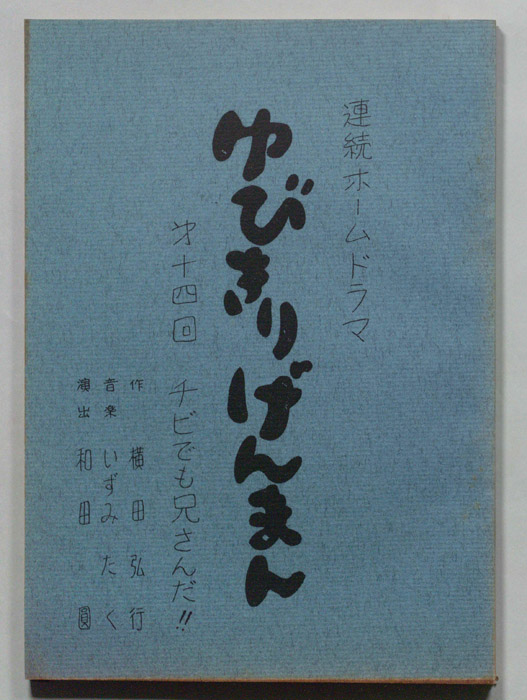 連続ホームドラマ
ゆびきりげんまん
第十四回 チビでも兄さんだ!!
作 横田弘行
音楽 いずみたく
演出 和田圓